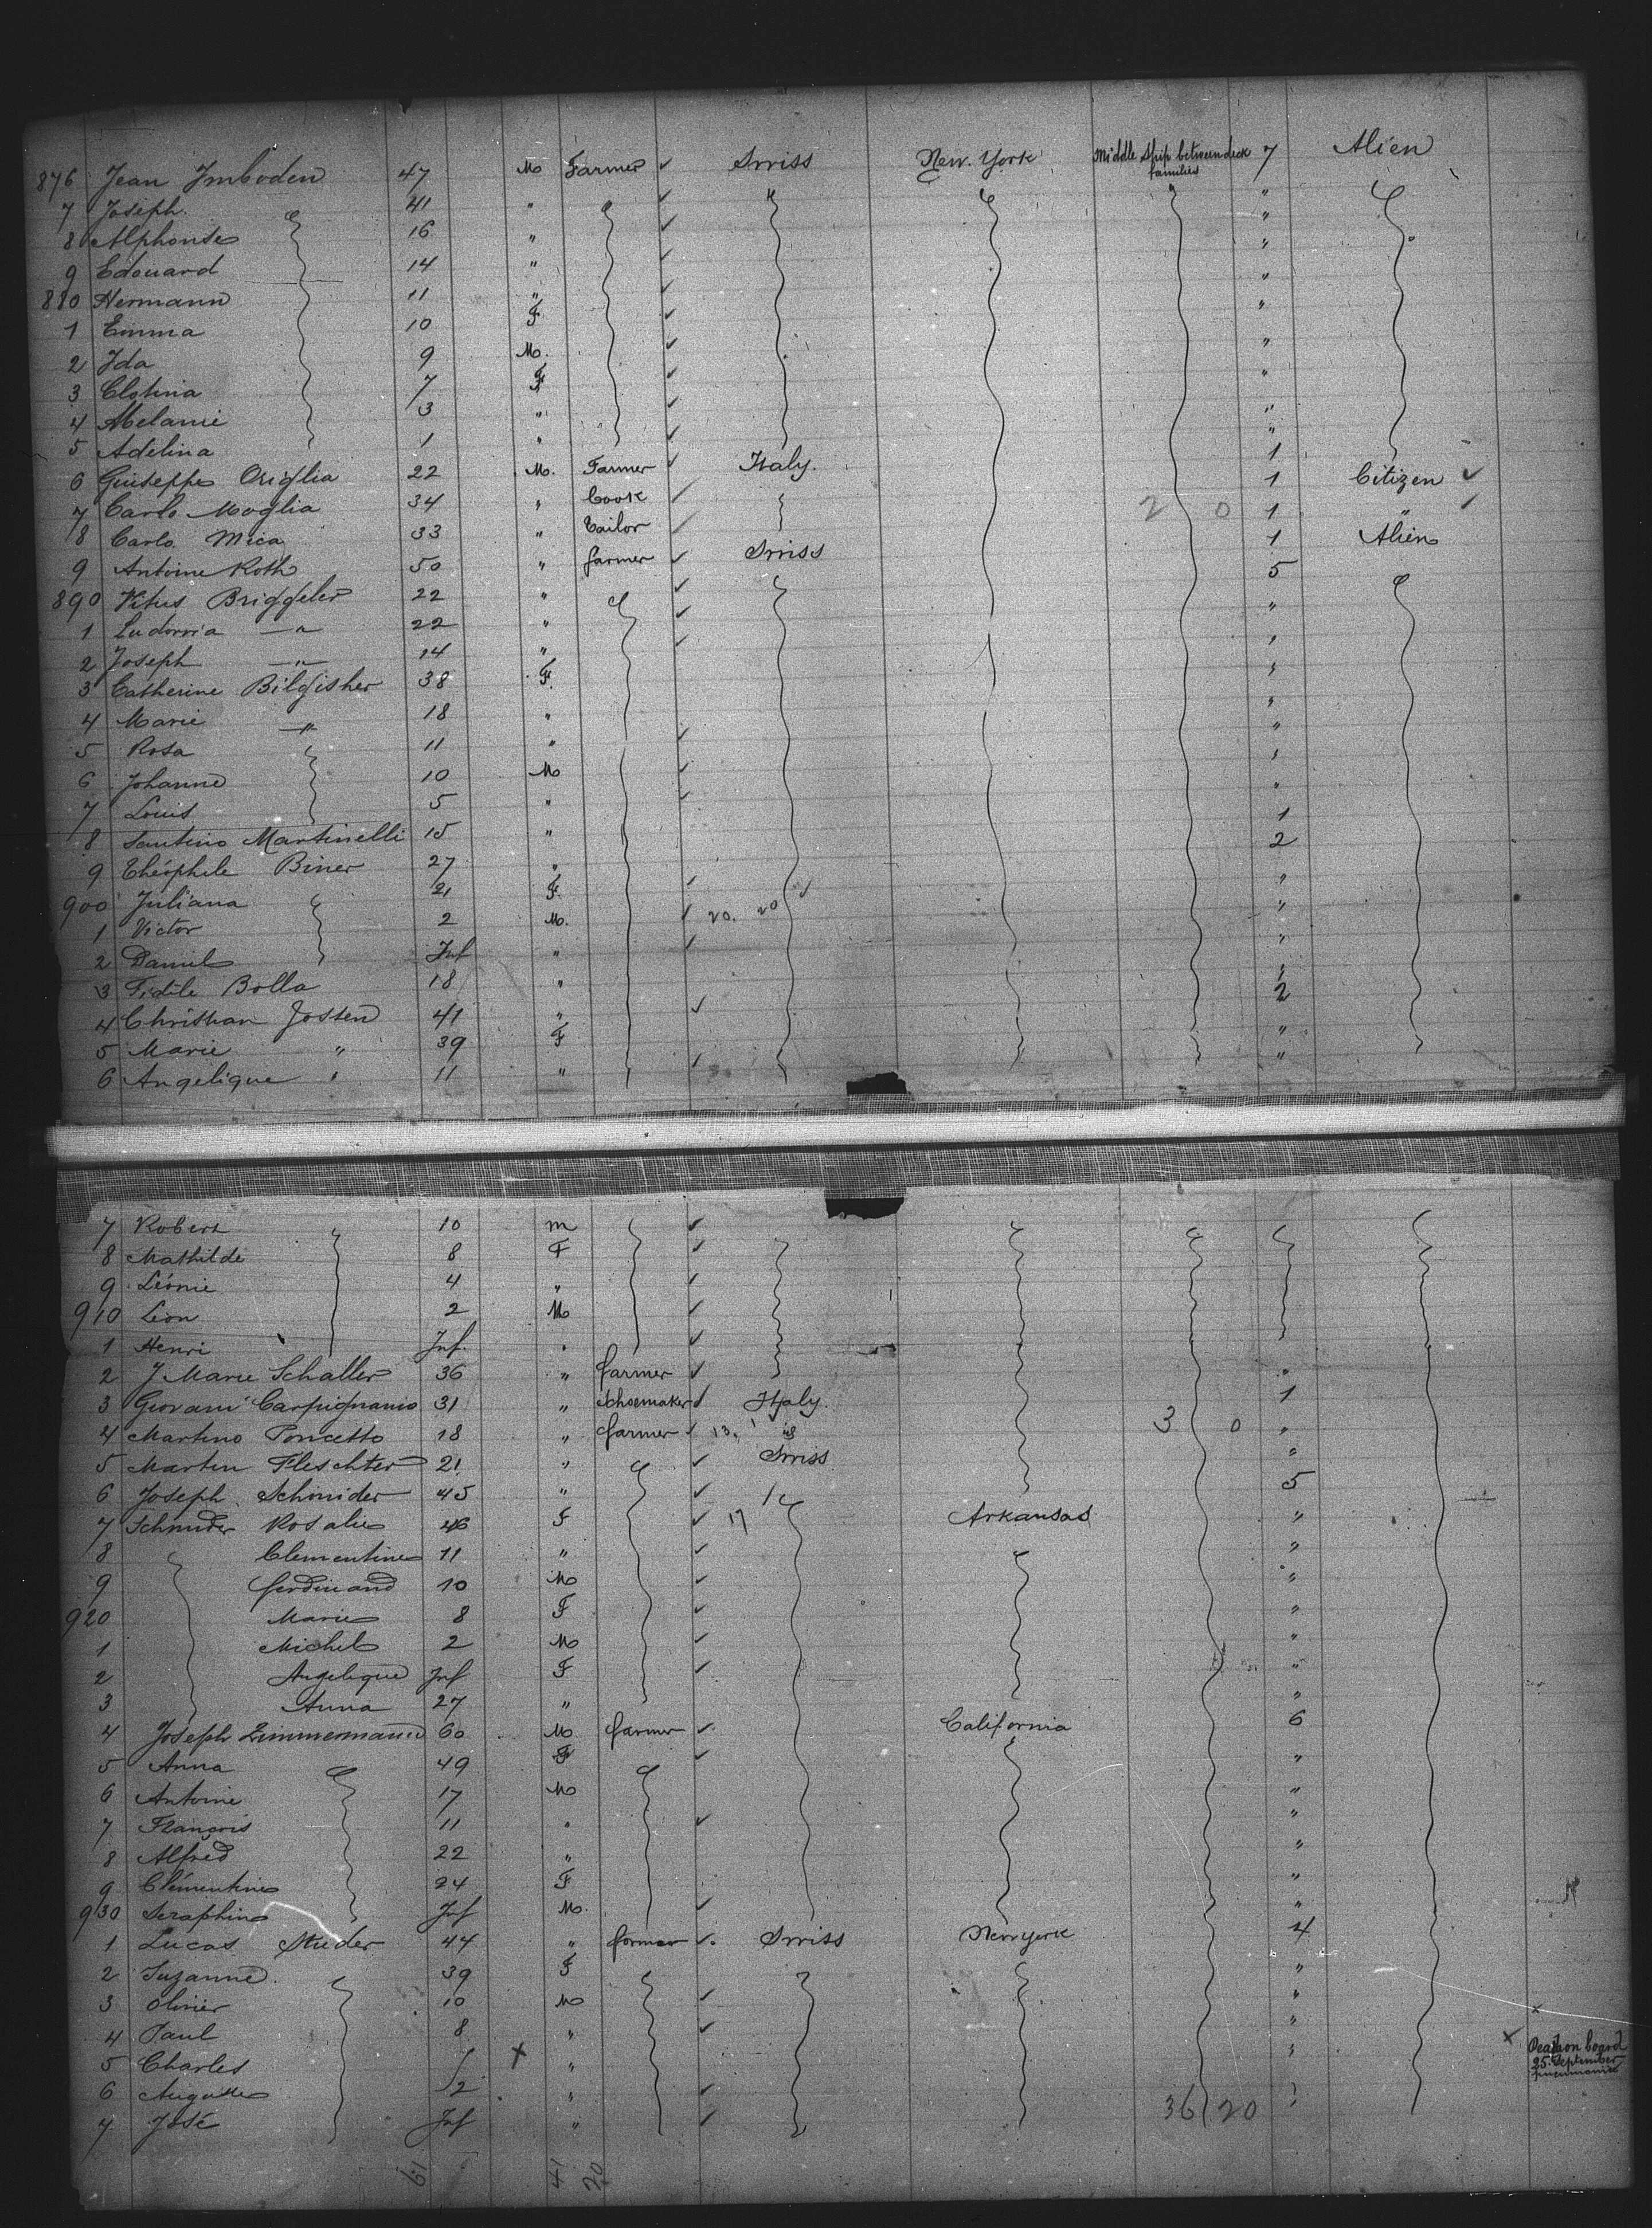 876 Jean Imboden 47 M Farmer ✓ Swiss New. York Middle Ship betweendeck families 7 Alien
7 Joseph. 41 " ✓ "
8 Alphonse 16 " ✓ "
9 Edouard 14 " ✓ "
880 Hermann 11 " ✓ "
1 Emma 10 F ✓ "
2 Ida 9 M. ✓ "
3 Clotina 7 F ✓ "
4 Melanie 3 " ✓ "
5 Adelina 1 " ✓ "
6 Giuseppe Origlia 22 M. Farmer ✓ Italy. 1 Citizen ✓
7 Carlo Moglia 34 " Cook ✓ 2 0 1 " ✓
8 Carlo Mica 33 " Tailor ✓ 1 Alien
9 Antoine Roth 50 " farmer ✓ Swiss 5
890 Vitus Briggeler 22 " ✓ "
1 Ludovia —"— 22 " ✓ "
2 Joseph —"— 14 " ✓ "
3 Catherine Bilgisher 38 F. "
4 Marie —"— 18 " "
5 Rosa 11 " ✓ "
6 Johann 10 M ✓ "
7 Louis 5 " ✓ "
8 Santino Martinelli 15 " 1
9 Théophile Biner 27 " 2
900 Juliana 21 F. ✓ "
1 Victor 2 M. ✓ 20. 20 "
2 Daniel Inf " ✓ "
3 Fidile Bolla 18 " "
4 Christian Josten 41 " ✓ 2
5 Marie " 39 F "
6 Angelique " 11 " ✓ "
7 Robert 10 m ✓
8 Mathilde 8 F ✓
9 Léonie 4 " ✓
910 Léon 2 M ✓
1 Henri Inf. " ✓
2 J Marie Schaller 36 " farmer ✓ "
3 Giovani Carpignanio 31 " Schoemaker ✓ Italy. 1
4 Martino Poncetto 18 " farmer ✓ 13. 3 0 "
5 Martin Fleschter 21 " ✓ Swiss "
6 Joseph Schnider 45 " ✓ 5
7 Schnider Rosalie 46 F ✓ 17 Arkansas "
8 Clementine 11 " ✓ "
9 ferdinand 10 M ✓ "
920 Marie 8 F ✓ "
1 Michel 2 M ✓ "
2 Angelique Inf F ✓ "
3 Anna 27 " "
4 Joseph Zimmermann 60 M farmer ✓ California 6
5 Anna 49 F ✓ "
6 Antoine 17 M "
7 François 11 " ✓ "
8 Alfred 22 " "
9 Clémentine 24 F "
930 Seraphine Inf M. ✓ "
1 Lucas Studer 44 " farmer ✓ Swiss New york 4
2 Suzanne. 39 F "
3 Olivier 10 M ✓ " x
4 Paul 8 " ✓ "
5 Charles 5 x " " x Death on board 25. September pneumonia
6 Auguste 2 " ✓ "
7 José Inf " ✓ 36 20
61 41 20